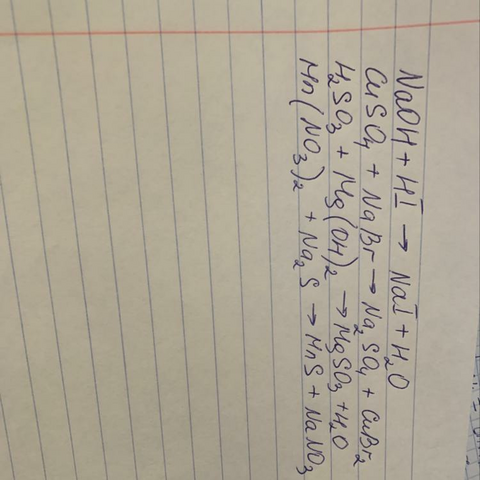 NaOH + HI → NaI + H₂O
CuSO₄ + NaBr → Na₂SO₄ + CuBr₂
H₂SO₃ + Mg(OH)₂ → MgSO₃ + H₂O
Mn(NO₃)₂ + Na₂S → MnS + NaNO₃